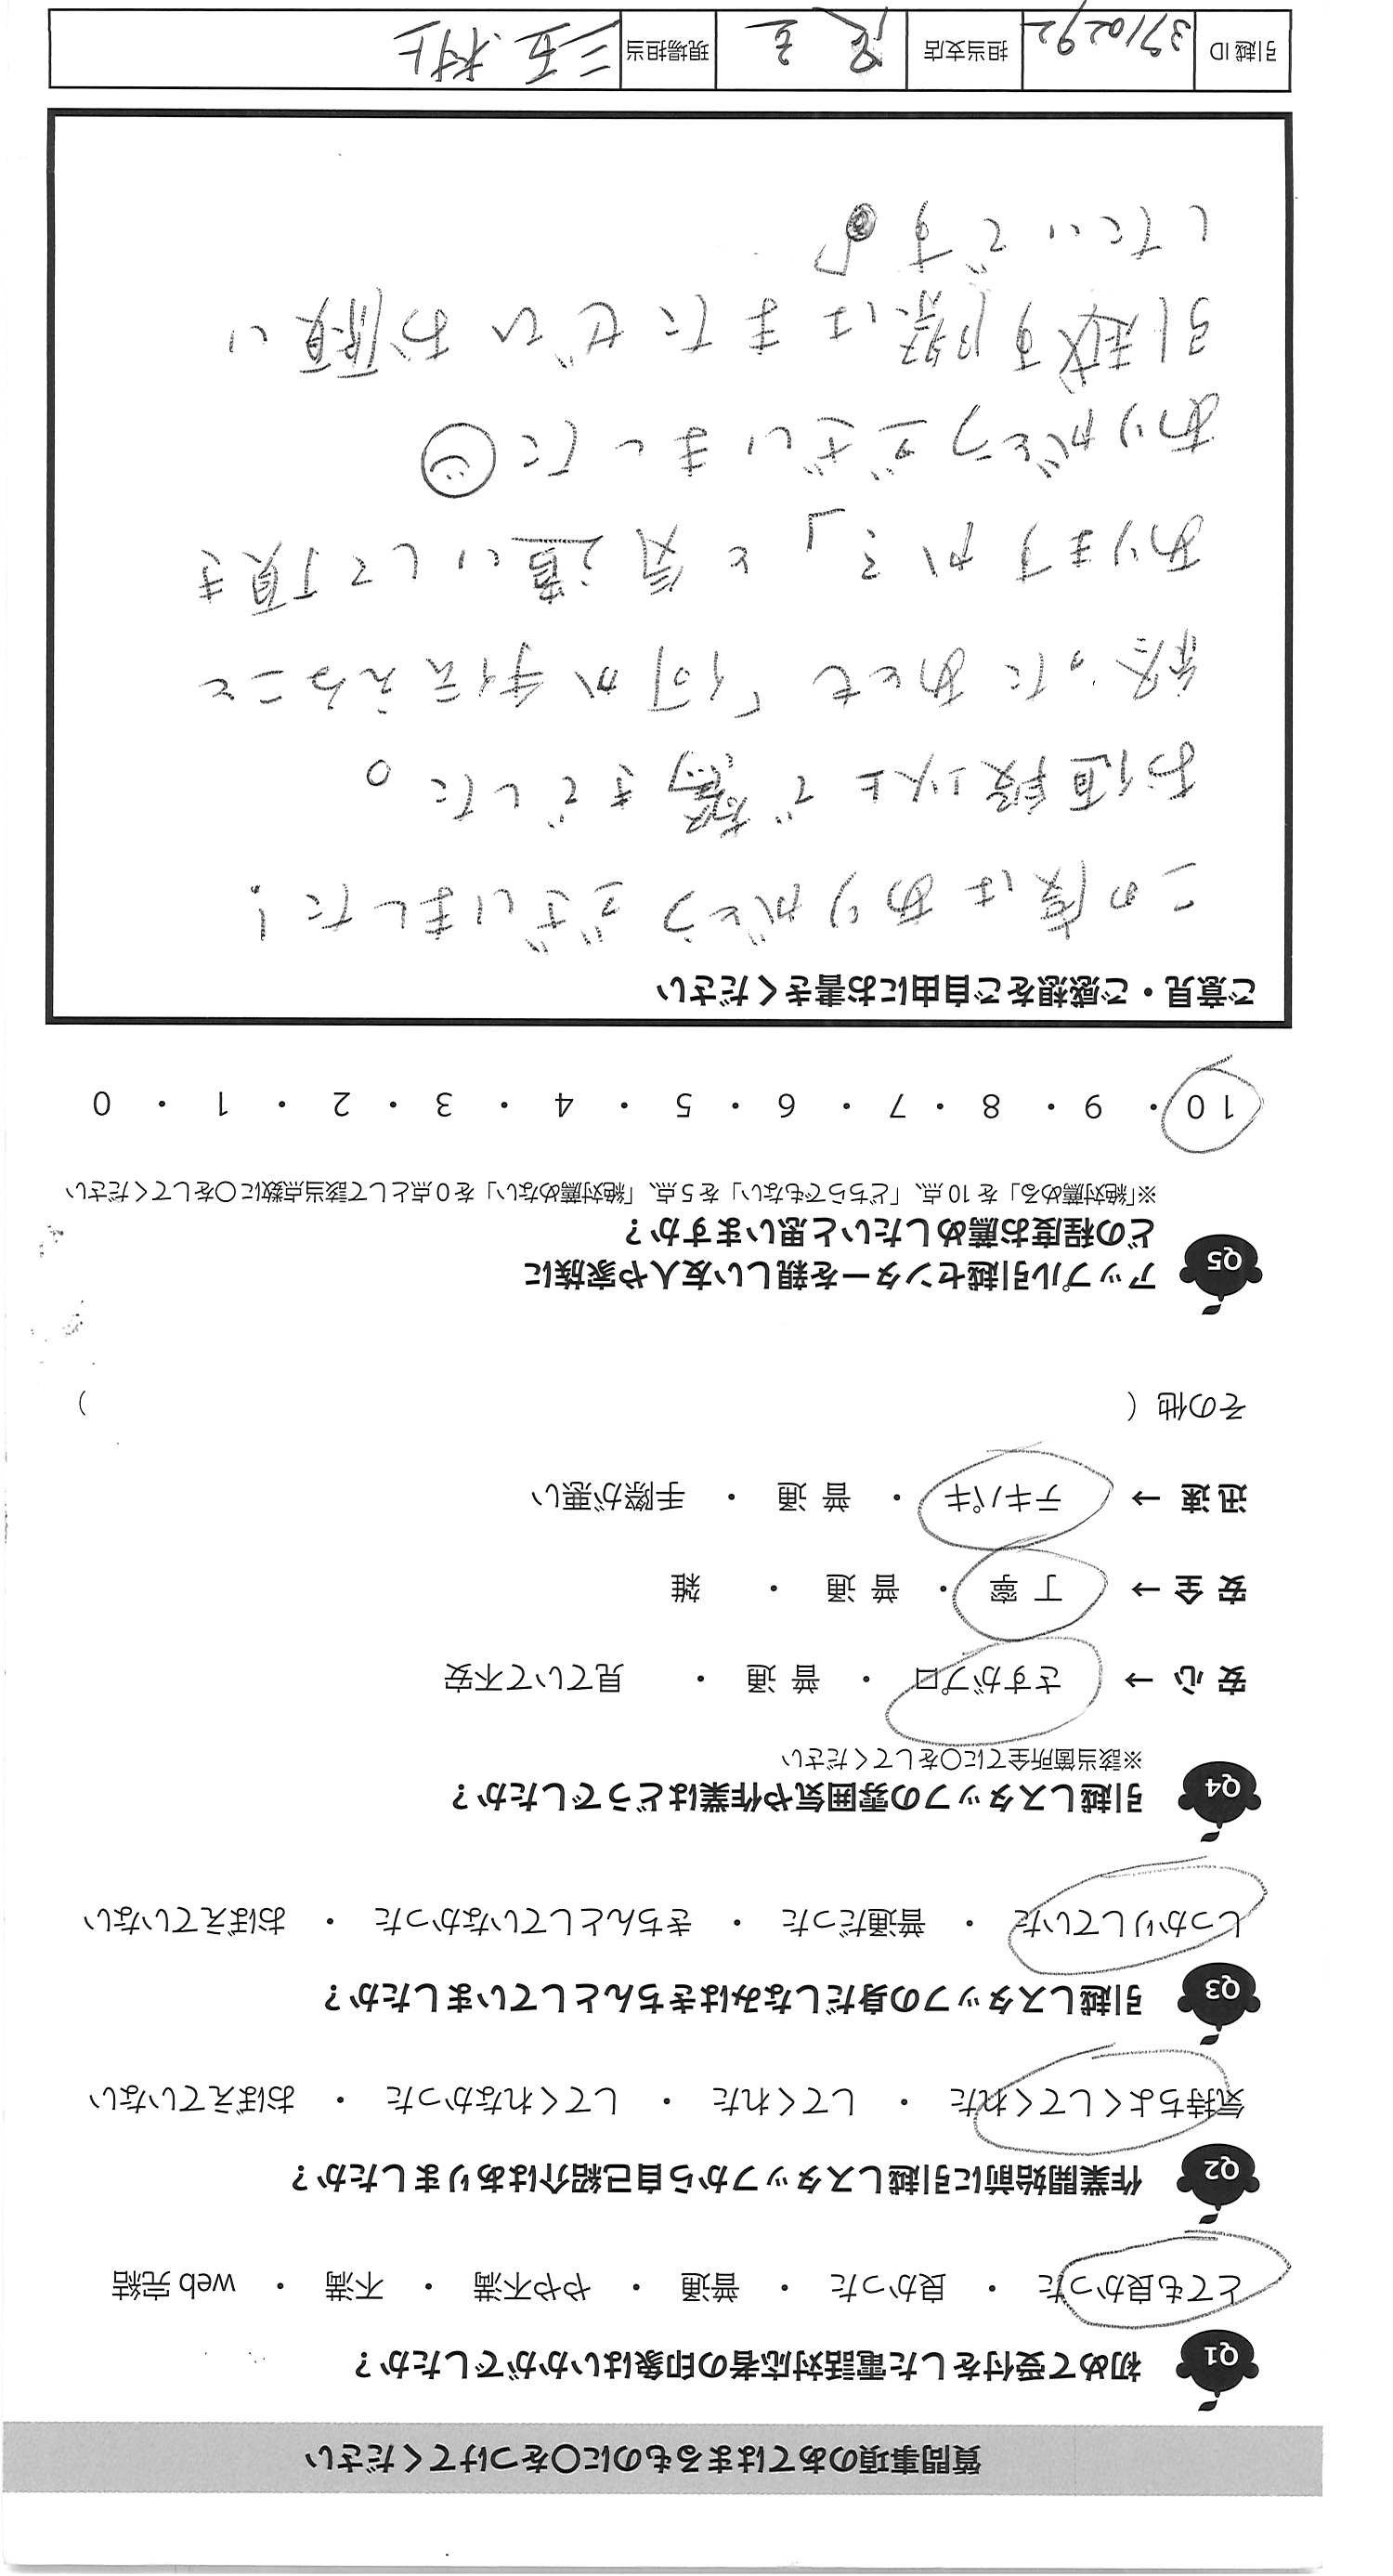 質問事項のあてはまるものに○をつけてください
Q1 初めて受付をした電話対応者の印象はいかがでしたか？
とても良かった ・ 良かった ・ 普通 ・ やや不満 ・ 不満 ・ web 完結
Q2 作業開始前に引越しスタッフから自己紹介はありましたか？
気持ちよくしてくれた ・ してくれた ・ してくれなかった ・ おぼえていない
Q3 引越しスタッフの身だしなみはきちんとしていましたか？
しっかりしていた ・ 普通だった ・ きちんとしていなかった ・ おぼえていない
Q4 引越しスタッフの雰囲気や作業はどうでしたか？
※該当箇所全てに○をしてください
安 心 → さすがプロ ・ 普 通 ・ 見ていて不安
安 全 → 丁 寧 ・ 普 通 ・ 雑
迅 速 → テキパキ ・ 普 通 ・ 手際が悪い
その他（ ）
Q5 アップル引越センターを親しい友人や家族に
どの程度お薦めしたいと思いますか？
※「絶対薦める」を 10 点、「どちらでもない」を 5 点、「絶対薦めない」を 0 点として該当点数に○をしてください
10 ・ 9 ・ 8 ・ 7 ・ 6 ・ 5 ・ 4 ・ 3 ・ 2 ・ 1 ・ 0
ご意見・ご感想をご自由にお書きください
この度はありがとうございました！
お値段以上で驚きでした。
終ったあとも「何か手伝えること
ありますか？」と気遣いして頂き
ありがとうございました
引越す際はまたぜひお願い
したいです♪
引越 ID 3710292 担当支店 現場担当 三五 村上